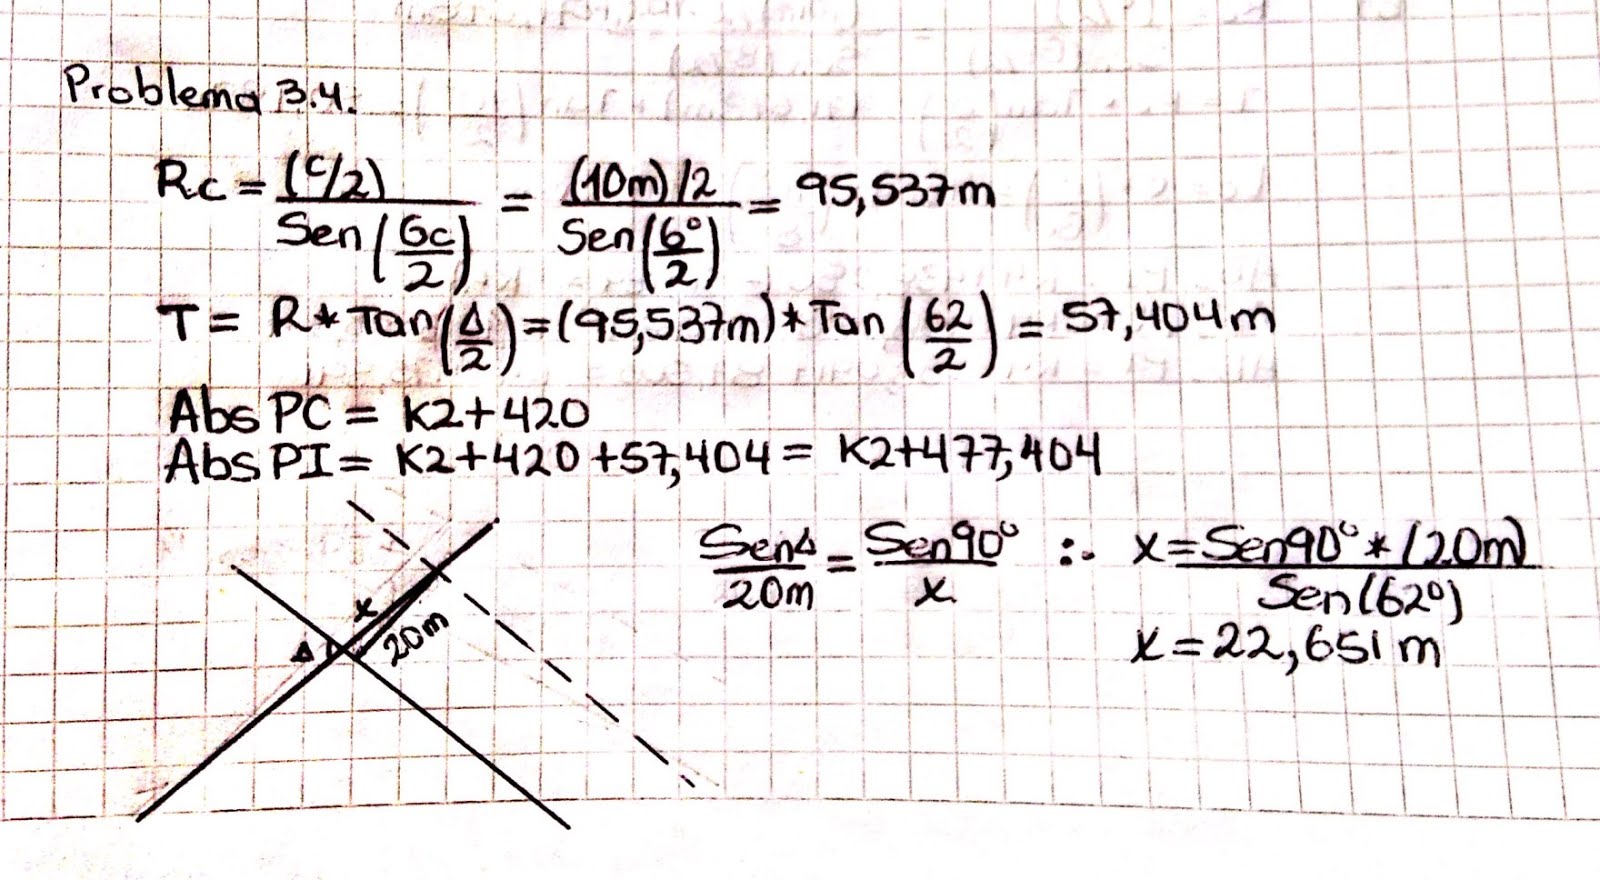 Problema 3.4.
Rc = (c/2) / Sen(Gc/2) = (10m)/2 / Sen(6°/2) = 95,537m
T = R * Tan(Δ/2) = (95,537m) * Tan(62/2) = 57,404m
Abs PC = K2+420
Abs PI = K2+420+57,404 = K2+477,404
SenΔ / 20m = Sen90° / x ∴ x = Sen90° * (20m) / Sen(62°)
x = 22,651 m
x
20m
Δ